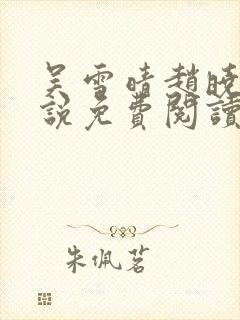 吴雪晴赵晓
説免費閱讀
朱佩茗